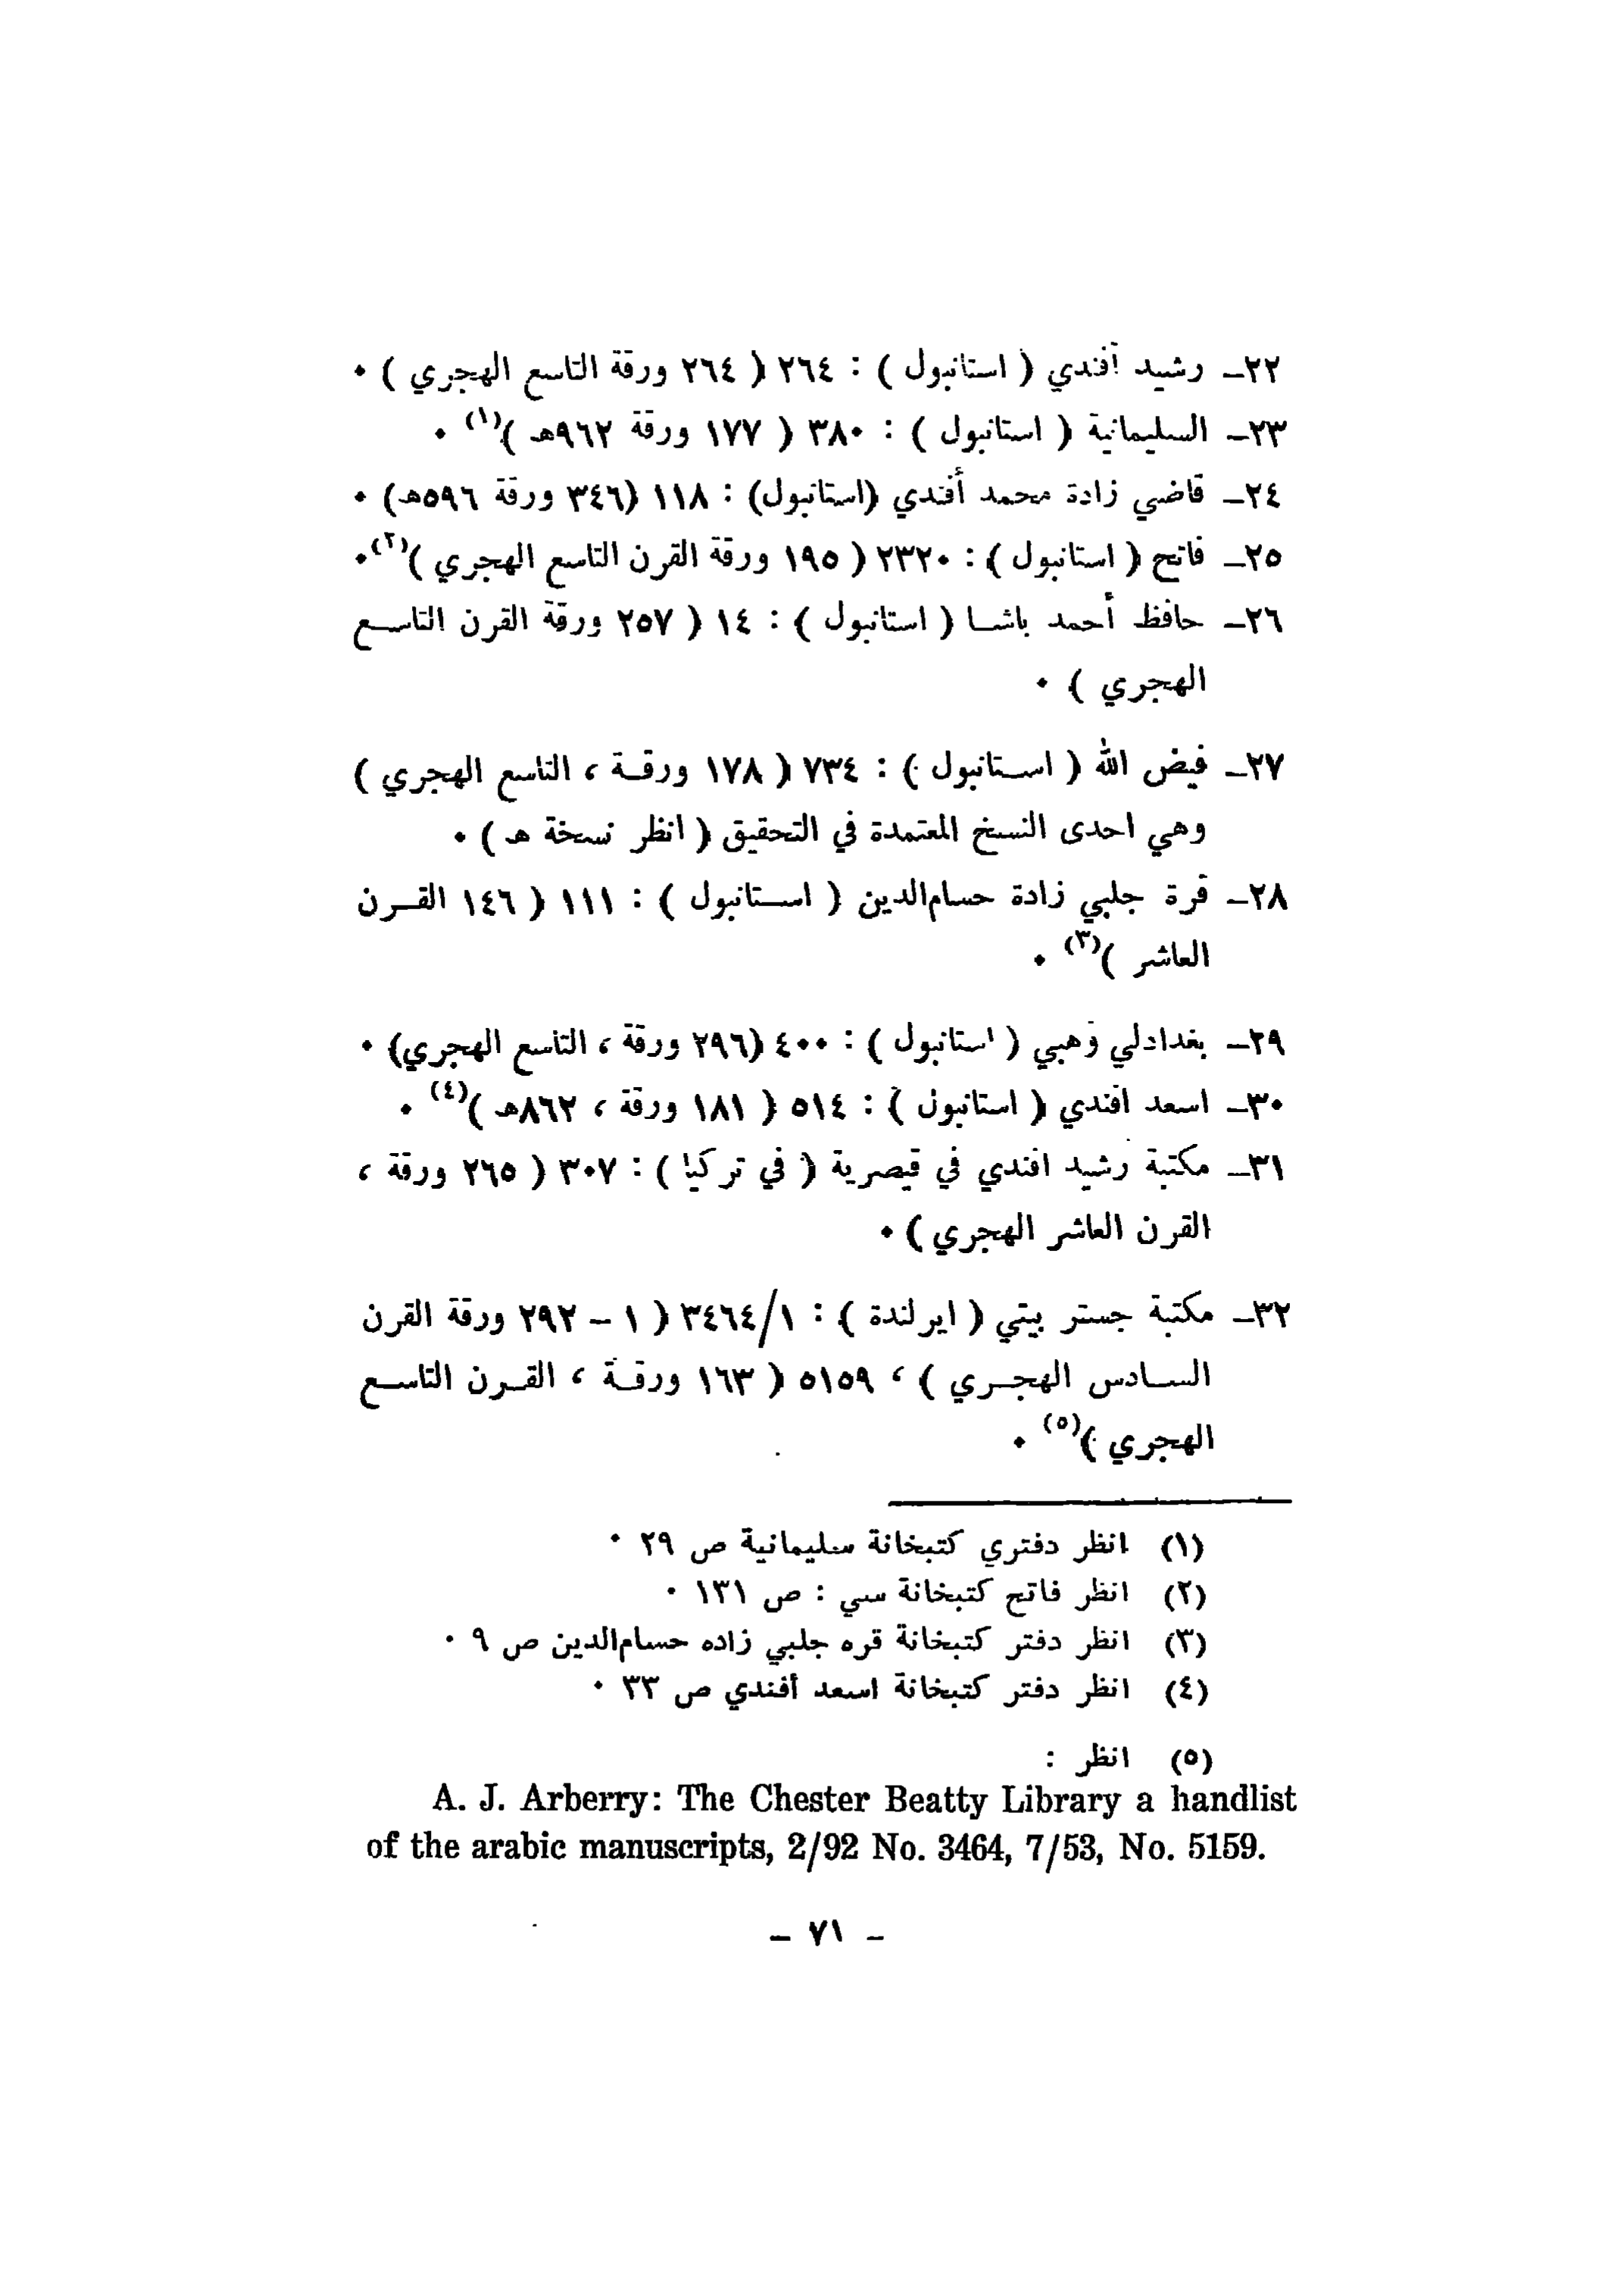 ٢٢ـ رشيد أفندي ( استانبول ) : ٢٦٤ ( ٢٦٤ ورقة التاسع الهجري ) .
٢٣ـ السليمانية ( استانبول ) : ٣٨٠ ( ١٧٧ ورقة ٩٦٢هـ )(١) .
٢٤ـ قاضي زادة محمد أفندي (استانبول) : ١١٨ (٣٤٦ ورقة ٥٩٦هـ) .
٢٥ـ فاتح ( استانبول ) : ٢٣٢٠ ( ١٩٥ ورقة القرن التاسع الهجري )(٢).
٢٦ـ حافظ أحمد باشا ( استانبول ) : ١٤ ( ٢٥٧ ورقة القرن التاسع
الهجري ) .
٢٧ـ فيض الله ( استانبول ) : ٧٣٤ ( ١٧٨ ورقة ، التاسع الهجري )
وهي احدى النسخ المعتمدة في التحقيق ( انظر نسخة هـ ) .
٢٨ـ قرة جلبي زادة حسام‌الدين ( استانبول ) : ١١١ ( ١٤٦ القرن
العاشر )(٣) .
٢٩ـ بغدادلي وهبي ( استانبول ) : ٤٠٠ (٢٩٦ ورقة ، التاسع الهجري) .
٣٠ـ اسعد افندي ( استانبول ) : ٥١٤ ( ١٨١ ورقة ، ٨٦٢هـ )(٤) .
٣١ـ مكتبة رشيد افندي في قيصرية ( في تركيا ) : ٣٠٧ ( ٢٦٥ ورقة ،
القرن العاشر الهجري ) .
٣٢ـ مكتبة جستر بيتي ( ايرلندة ) : ٣٤٦٤/١ ( ١ – ٢٩٢ ورقة القرن
السادس الهجري ) ، ٥١٥٩ ( ١٦٣ ورقة ، القرن التاسع
الهجري )(٥) .
(١) انظر دفتري كتبخانة سليمانية ص ٢٩ .
(٢) انظر فاتح كتبخانة سي : ص ١٣١ .
(٣) انظر دفتر كتبخانة قره جلبي زاده حسام‌الدين ص ٩ .
(٤) انظر دفتر كتبخانة اسعد أفندي ص ٣٣ .
(٥) انظر :
A. J. Arberry: The Chester Beatty Library a handlist
of the arabic manuscripts, 2/92 No. 3464, 7/53, No. 5159.
– ٧١ –